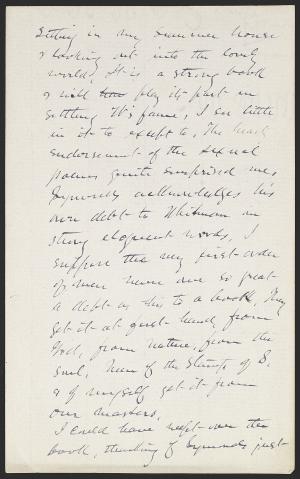 sitting in my summer house
& looking out into the lovely
world. It is a strong book
& will play its part in
settling W's fame. I see little
in it to except to. The heavy
endorsement of the sexual
poems quite surprised me.
Symonds acknowledges his
own debt to Whitman in
strong eloquent words. I
suppose the very first order
of men never owe so great
a debt as this to a book. They
get it at first hand, from
God, from nature, from the
soul. Men of the stamp of S.
& of myself get it from
our masters.
I could have wept over the
book, thinking of Symonds just